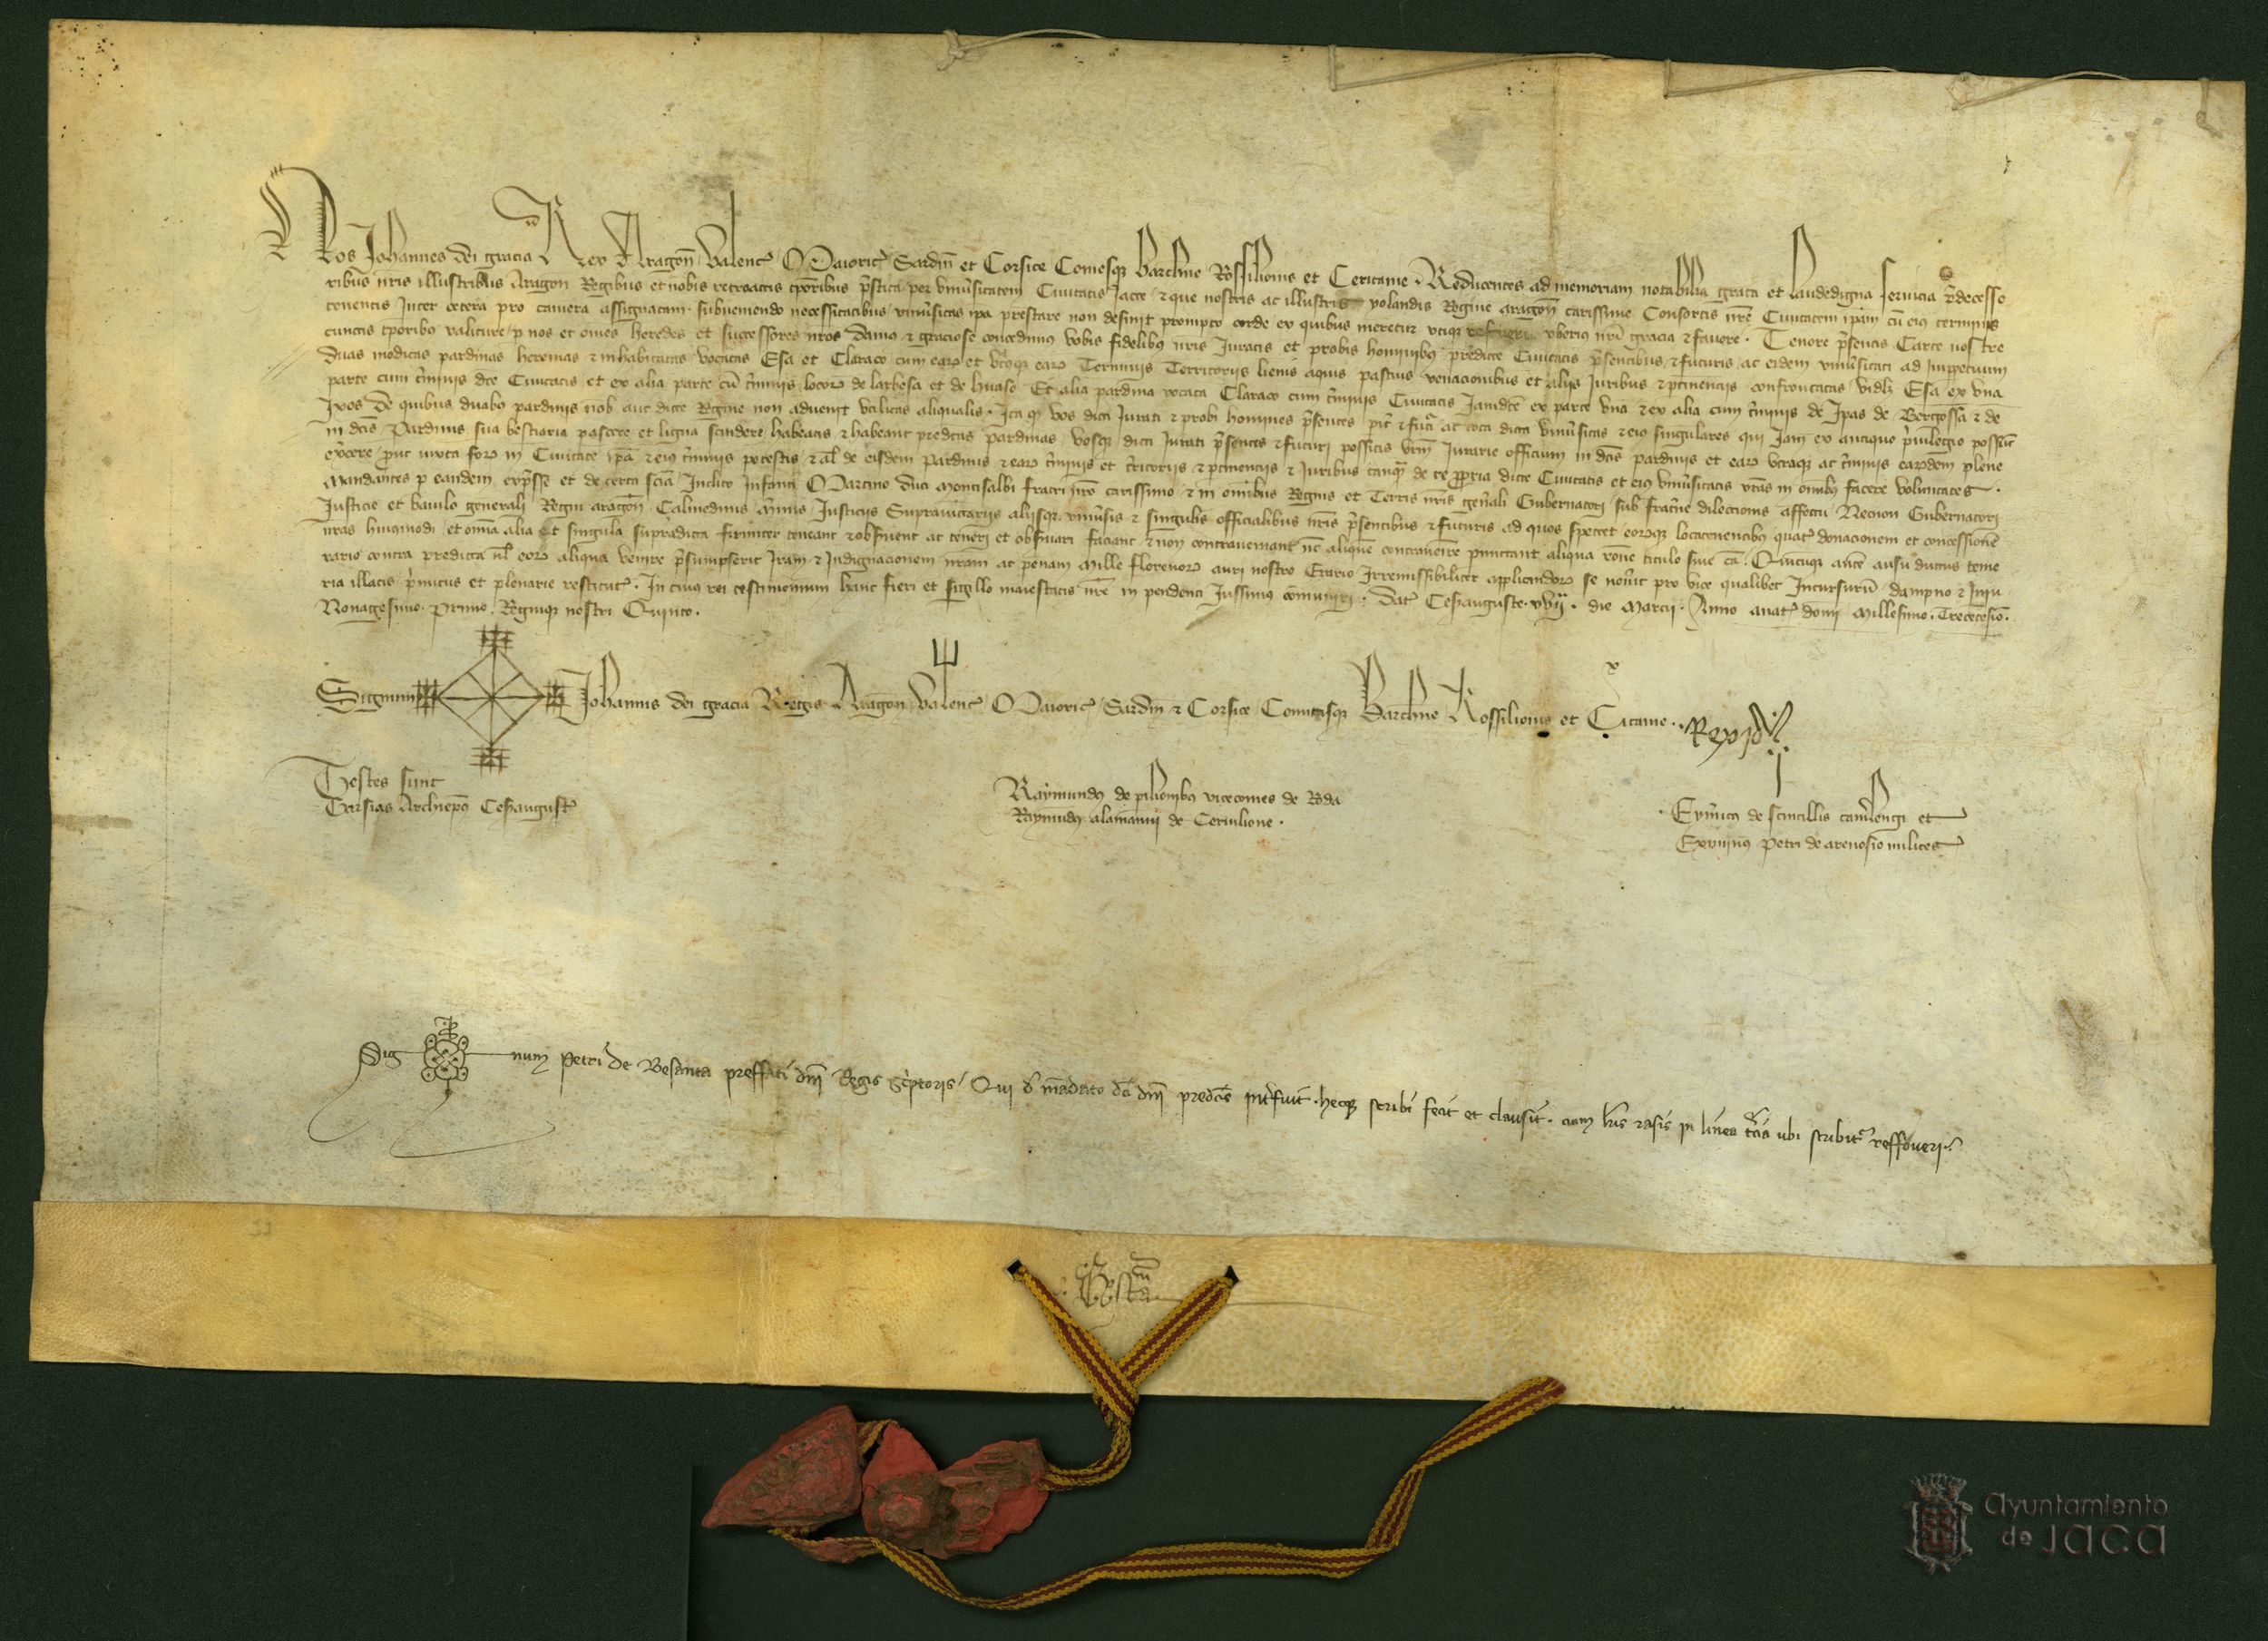 Nos Johannes dei gracia Rex Aragon Valenc Maioric Sardin et Corsice Comesq Barchne Rossilionis et Ceritanie. Reducentes ad memoriam notabilia grata et laudedigna servicia predecesso
ribus nris illustribus Aragon Regibus et nobis retroactis tporibus prestita per univsitatem Civitatis Jacce et que nostris ac illustris yolandis Regine aragon carissime Consortis nre Civitatem ipam cu eius terminis
tenentis Inter cetera pro camera assignatam subveniendo necessitatibus univsitas ipa prestare non desinit prompto corde ex quibus meretur utiq reffoveri uberius nri gracia et favore. Tenore presentis Carte nostre
cunctis tporibus valiture p nos et omes heredes et successores nros Damus et graciose concedimus vobis fidelibus nris Juratis et probis hominibus predicte Civitatis presentibus et futuris ac eidem univsitati ad imppetuum
duas modicas pardinas heremas et inhabitatas vocatas Esa et Claraco cum earum et utriusq earum Terminis Territoriis lienis aquis pascuis venacionibus et aliis Juribus et ptinenciis confrontatas vidlz Esa ex una
parte cum tminis dce Civitatis et ex alia parte cu tminis locorum de larbesa et de huaso Et alia pardina vocata Claraco cum tminis Civitatis Jamdce ex parte una et ex alia cum tminis de Ipas de Bergossa et de
Ixos De quibus duabus pardinis nob aut dicte Regine non advenit utilitas aliqualis. Ita q vos dicti Jurati et probi homines presentes pit et futi ac tota dicta univsitas et eius singulares qui Jam ex antiquo privilegio possut
in dcis Pardinis sua bestiaria pascere et ligna scindere habeatis et habeant predctas pardinas vosq dicti Jurati presentes et futuri possitis vrm Juratie officium in dcis pardinis et earum utraq ac tminis earumdem plene
exercere prout iuxta forum in Civitate ipa et eius tminis potestis et al de eisdem Pardinis et earum tminis et tritoriis et ptinenciis et Juribus tanqua de re propria dicte Civitatis et eius univsitatis vras in omibus facere voluntates.
Mandantes p eandem expresse et de certa scia Inclito Infanti Martino duci Montisalbi fratri nro carissimo et in omibus Regnis et Terris nris genali Gubernatori sub fratne dileccionis affectu Necnon Gubernatori
Justicie et baiulo generali Regni aragon Calmedinis Merinis Justiciis Suprajunctariis aliisq univsis et singulis officialibus nris presentibus et futuris ad quos spectet eorumq locatenentibus quat donacionem et concessionem
nras huiusmodi et omia alia et singula supradicta firmiter teneant et observent ac teneri et observari faciant et non contraveniant nec aliquem contravenire pmittant aliqua rone titulo sive ca. Quicuq autem ausu ductus teme
rario contra predicta vel eorum aliqua venire presumpserit Iram et Indignacionem nram ac penam Mille florenorum auri nostro Erario Irremissibiliter applicandorum se noverit pro vice qualibet Incursurum dampno et Iniu
ria illatis primitus et plenarie restitutis. In cuius rei testimonium hanc fieri et sigillo maiestatis nre in pendenti Jussimus comuniri. Dat Cesarauguste xvii die Marcii Anno a nat domi Millesimo. Trecetesio.
Nonagesimo Primo. Regniq nostri Quinto.
Signum Johannis dei gracia Regis Aragon Valenc Maioric Sardin et Corsice Comitisq Barchne Rossilionis et Citanie. Rex Jo
Testes sunt
Garsias Archiepus Cesaraugust
Raymundus de pilionibus vicecomes de Roda
Raymundus alamanni de Cervilione.
Eymicus de scintillis camlengi et
Eximinus Petri de arenosio milites
Signum Petri de Besanta preffati dni Regis scriptoris Qui de madato dci dni predcis interfuit hecq scribi fecit et clausit. cum lris rasis in linea tcia ubi scribit reffoveri.
Ayuntamiento
de Jaca